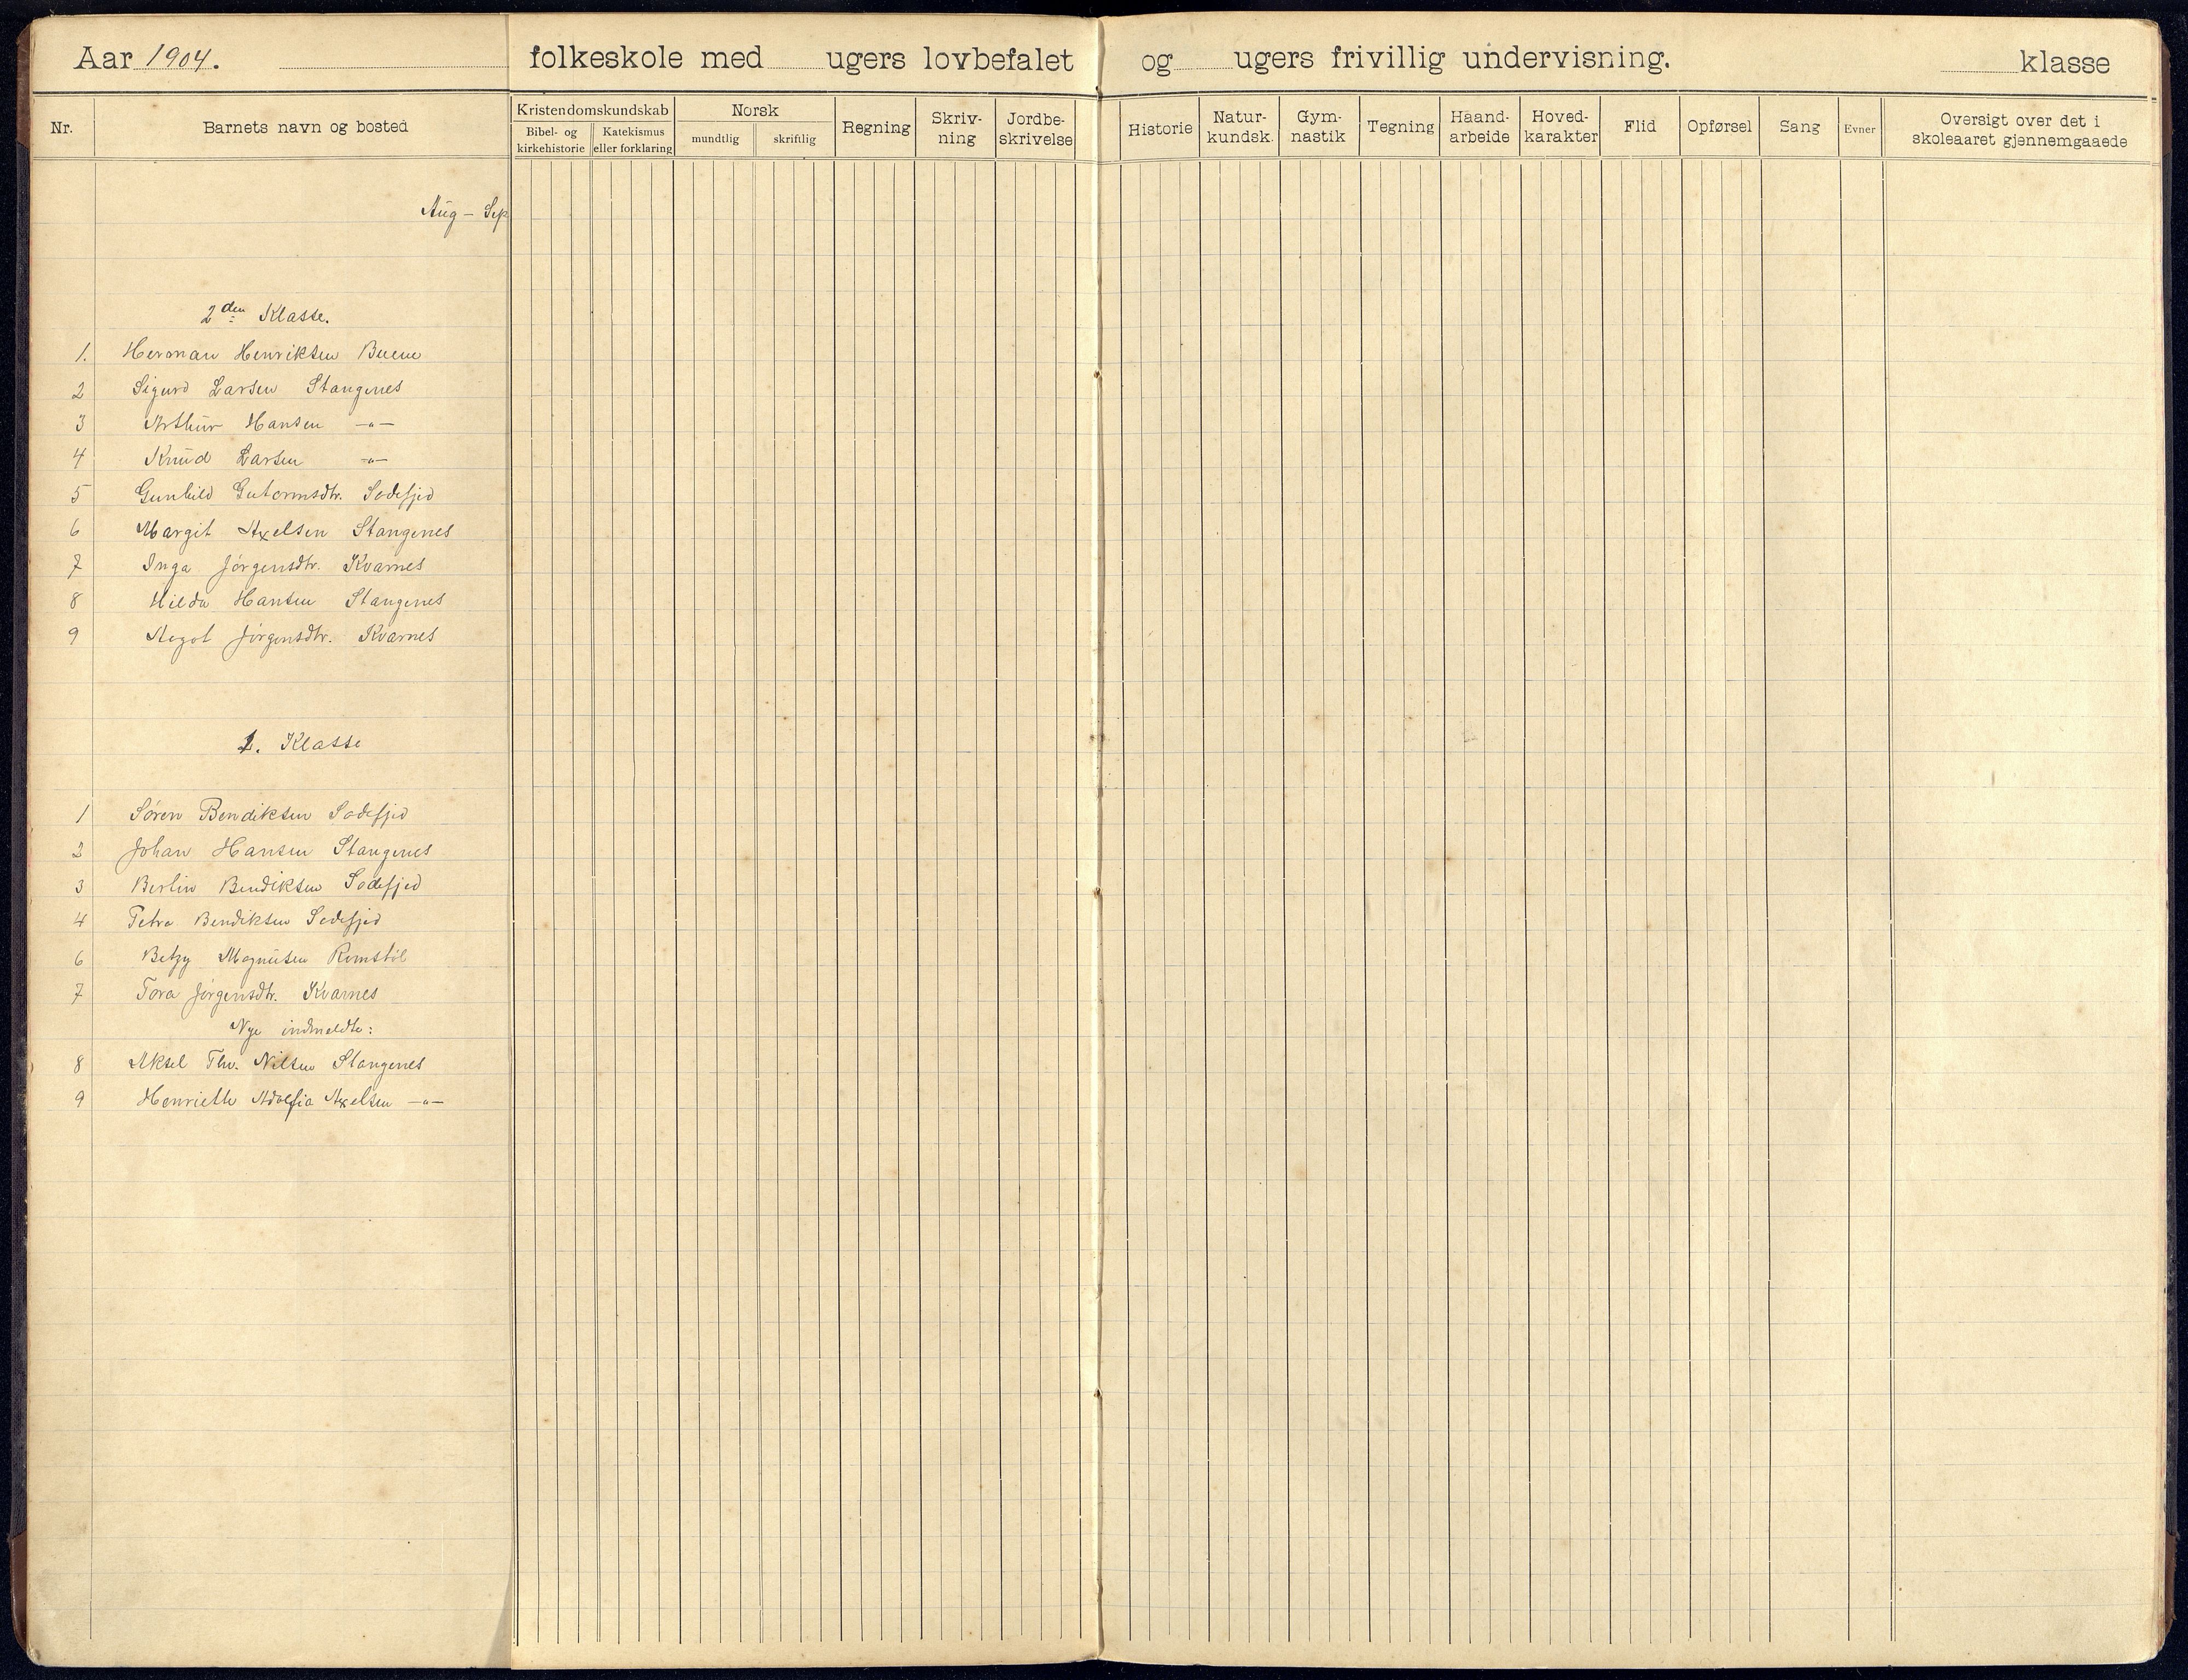 Aar 1904. folkeskole med ugers lovbefalet og ugers frivillig undervisning. klasse
Nr.
Barnets navn og bosted
Kristendomskundskab
Bibel- og kirkehistorie
Katekismus eller forklaring
Norsk
mundtlig
skriftlig
Regning
Skriv-
ning
Jordbe-
skrivelse
Historie
Natur-
kundsk.
Gym-
nastik
Tegning
Haand-
arbeide
Hoved-
karakter
Flid
Opførsel
Sang
Evner
Oversigt over det i
skoleaaret gjennemgaaede
Aug - Sep
2den Klasse.
1. Herman Henriksen Buene
2 Sigurd Larsen Stangenes
3 Arthur Hansen -"-
4 Knud Larsen -"-
5 Gunhild Gutormsdtr. Sodefjed
6 Margit Axelsen Stangenes
7 Inga Jørgensdtr. Kvarnes
8 Hilda Hansen Stangenes
9 Aagot Jørgensdtr. Kvarnes
1. Klasse
1 Søren Bendiksen Sodefjed
2 Johan Hansen Stangenes
3 Berlin Bendiksen Sodefjed
4 Petra Bendiksen Sodefjed
6 Betzy Magnusen Romstøl
7 Tora Jørgensdtr. Kvarnes
Nye indmeldte:
8 Aksel Thv. Nilsen Stangenes
9 Henriette Adolfia Axelsen -"-